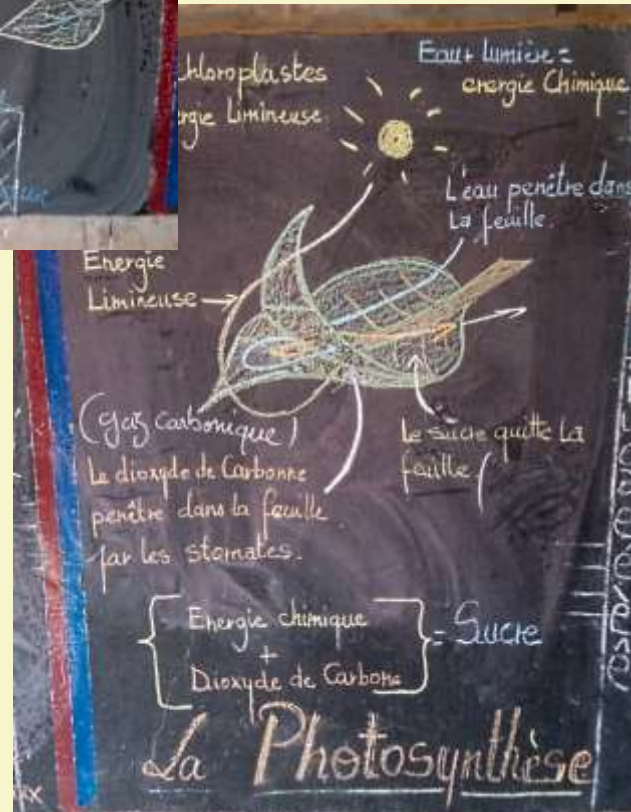 hloroplastes
rgie Limineuse.
Eau + lumière =
energie Chimique
L'eau penêtre dans
La feuille.
Energie
Limineuse
(gaz carbonique)
Le dioxyde de Carbonne
penêtre dans la feuille
par les stomates.
Le sucre quitte La
feuille
Energie chimique
+
Dioxyde de Carbone
= Sucre
La Photosynthèse